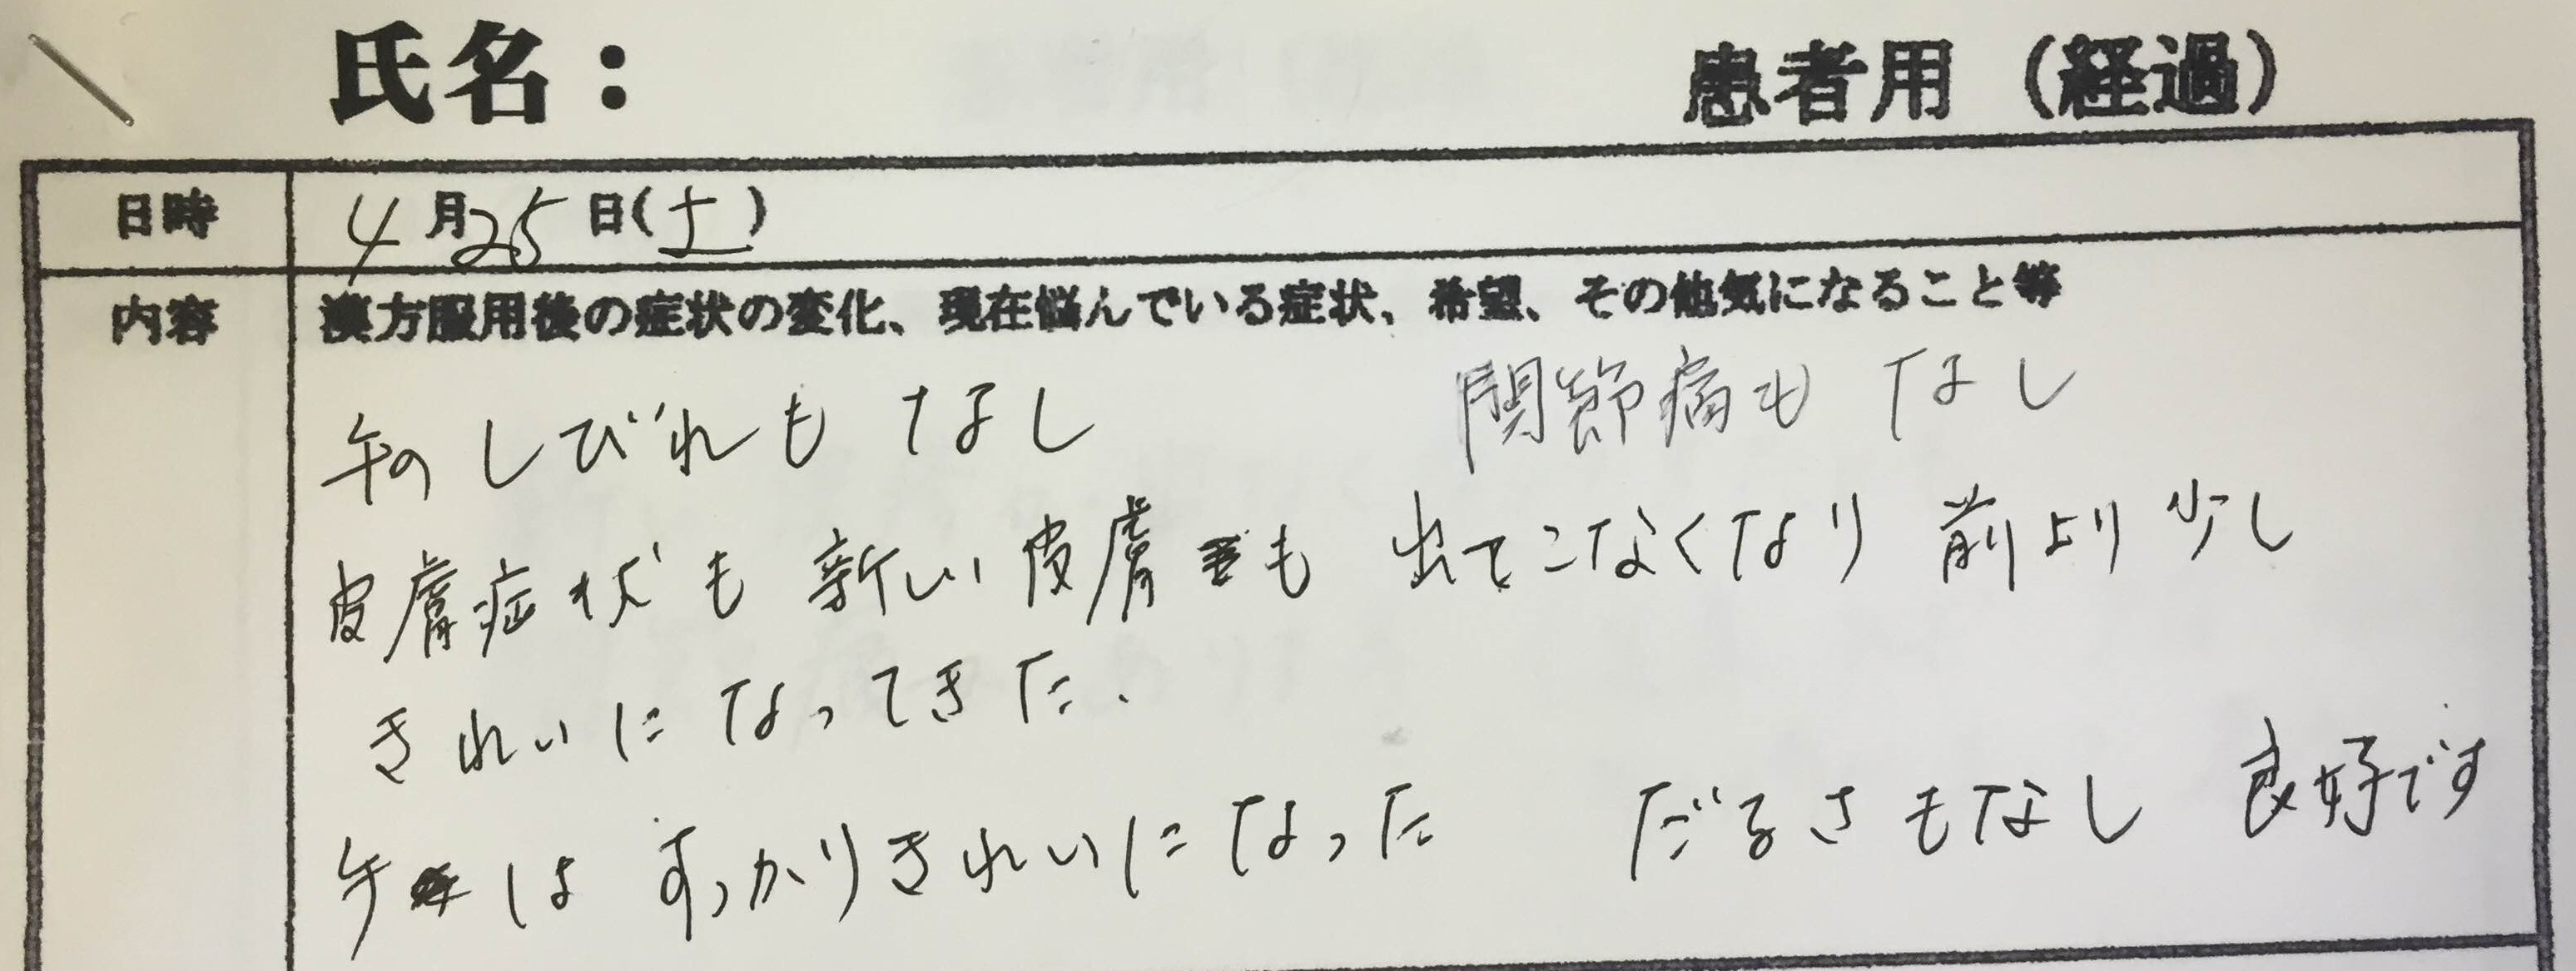 氏名： 患者用（経過）
日時 4月25日(土)
内容 漢方服用後の症状の変化、現在悩んでいる症状、希望、その他気になること等
手のしびれもなし 関節痛もなし
皮膚症状も新しい皮膚も出てこなくなり前より少し
きれいになってきた.
手はすっかりきれいになった だるさもなし 良好です